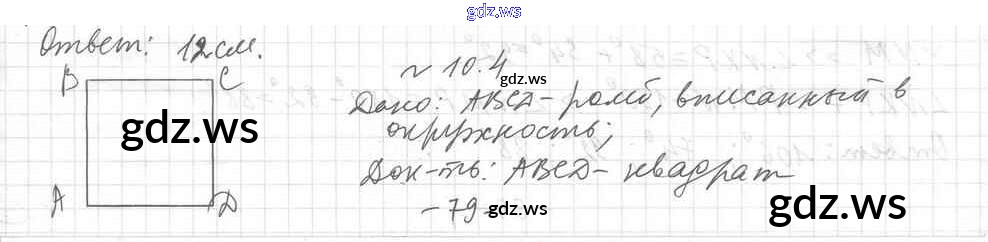 gdz.ws
Ответ: 12 см.
№ 10.4
gdz.ws
B C
Дано: ABCD - ромб, вписанный в
gdz.ws
окружность;
Док-ть: ABCD - квадрат
A D
- 79 -
gdz.ws
gdz.ws